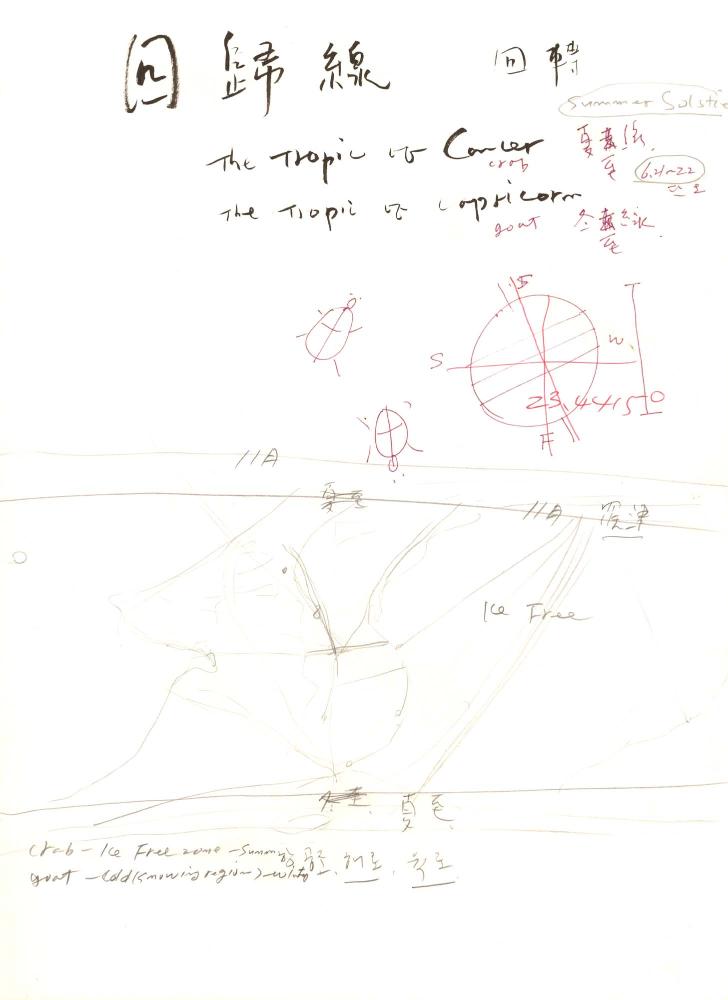 回歸線 回轉
Summer Solstic
The Tropic of Cancer
crab
夏至線
至
6.21~22
The Tropic of Capricorn
goat
冬至線
至
S
S
W
23.44150
F
11月
夏至
11月 深津
Ice Free
冬至 夏至
Crab - Ice Free zone - Summ 항공로, 해로, 육로
goat - Cold (snowing region) - Winter